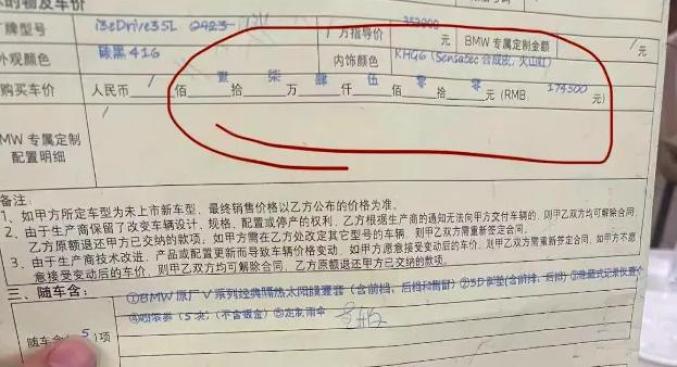 的物及车价
厂牌型号 i3eDrive35L 厂方指导价 353900 元 BMW 专属定制金额 / 元
外观颜色 碳黑416 内饰颜色 KHGG (Sensatec 合成皮, 火山红)
购买车价 人民币 / 佰 壹 拾 柒 万 肆 仟 伍 佰 零 拾 零 元 (RMB 174500 元)
MW 专属定制 /
配置明细
备注:
1、如甲方所定车型为未上市新车型,最终销售价格以乙方公布的价格为准。
2、由于生产商保留了改变车辆设计、规格、配置或停产的权利,乙方根据生产商的通知无法向甲方交付车辆的,则甲乙双方均可解除合同,
乙方原额退还甲方已交纳的款项。如甲方需在乙方处改定其它型号的车辆,则甲乙双方需重新签定合同。
3、由于生产商技术改进、产品或配置更新而导致车辆价格变动,如甲方愿意接受变动后的车价,则甲乙双方需重新签定合同,如甲方不愿
意接受变动后的车价,则甲乙双方均可解除合同,乙方原额退还甲方已交纳的款。
三、随车含:
①BMW原厂V系列经典隔热太阳膜套装(含前挡、后档和侧窗)②3D脚垫(含前排、后排)③隐藏式记录仪
(5次)(不含钣金)⑤定制雨伞
随车含(5)项